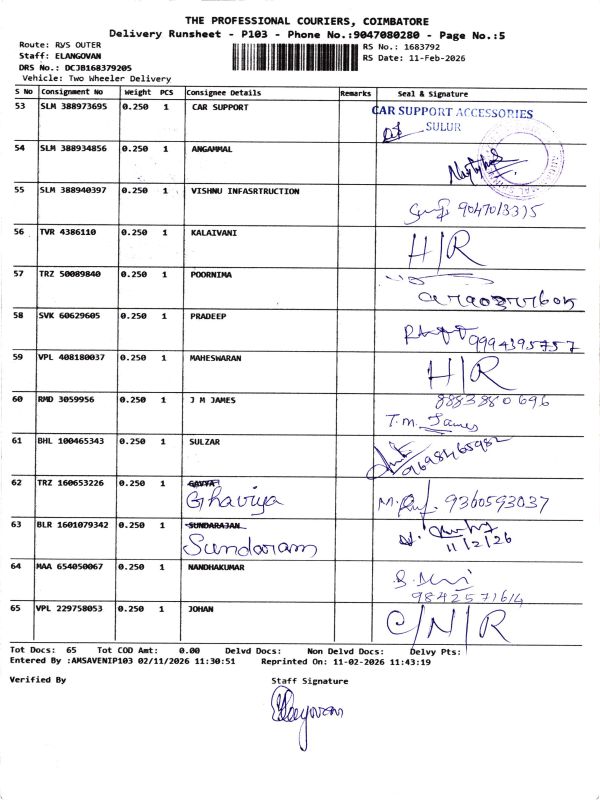 THE PROFESSIONAL COURIERS, COIMBATORE
Delivery Runsheet - P103 - Phone No.:9047080280 - Page No.:5
Route: RVS OUTER
Staff: ELANGOVAN
DRS No.: DCJB168379205
Vehicle: Two Wheeler Delivery
RS No.: 1683792
RS Date: 11-Feb-2026
S No Consignment No Weight PCS Consignee Details Remarks Seal & Signature
53 SLM 388973695 0.250 1 CAR SUPPORT CAR SUPPORT ACCESSORIES
SULUR
54 SLM 388934856 0.250 1 ANGAMMAL
55 SLM 388940397 0.250 1 VISHNU INFASRTRUCTION
9047013375
56 TVR 4386110 0.250 1 KALAIVANI H/R
57 TRZ 50089840 0.250 1 POORNIMA
58 SVK 60629605 0.250 1 PRADEEP
9994395757
59 VPL 408180037 0.250 1 MAHESWARAN H/R
60 RMD 3059956 0.250 1 J M JAMES 8883880696
T.M. James
61 BHL 100465343 0.250 1 SULZAR
62 TRZ 160653226 0.250 1 GAVYA
Ghaviya 9360593037
63 BLR 1601079342 0.250 1 SUNDARAJAN
Sundaram 11/2/26
64 MAA 654050067 0.250 1 NANDHAKUMAR
9842571614
65 VPL 229758053 0.250 1 JOHAN C/N/R
Tot Docs: 65 Tot COD Amt: 0.00 Delvd Docs: Non Delvd Docs: Delvy Pts:
Entered By :AMSAVENIP103 02/11/2026 11:30:51 Reprinted On: 11-02-2026 11:43:19
Verified By Staff Signature
Elangovan